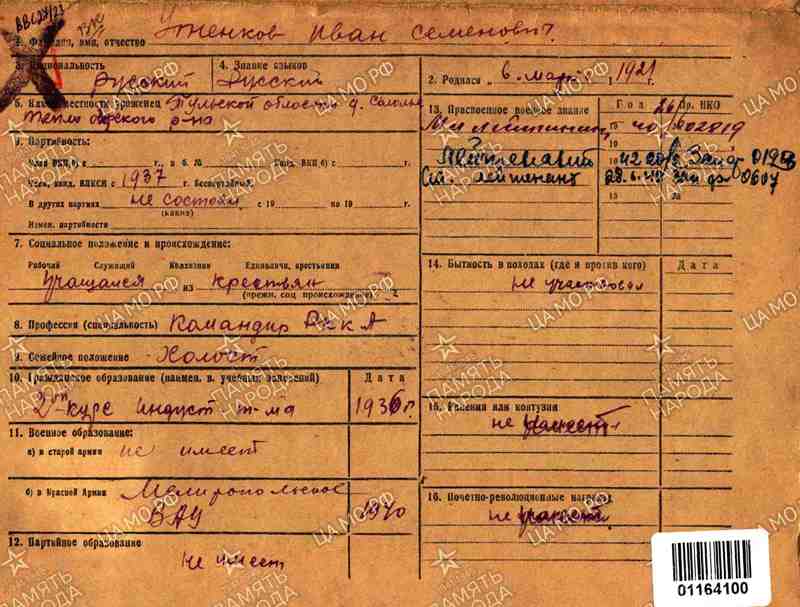 ВВС 27/23
1. Фамилия, имя, отчество Утенков Иван Семенович
3. Национальность Русский
4. Знание языков Русский
2. Родился „ 6 марта 1921
5. Какой местности уроженец Тульской области д.
Тепло р-на
6. Партийность:
Член ВКП(б) с г. п. б. № Канд. ВКП(б) с г.
Член, канд. ВЛКСМ с 1937 г. Беспартийный.
В других партиях не состоял с 19 по 19 г.
(каких)
Измен. партийности
7. Социальное положение и происхождение:
Рабочий Служащий Колхозник Единолич. крестьянин
Учащийся из крестьян
(прежн. соц. происхождение)
8. Профессия (специальность) Командир РККА
9. Семейное положение Холост
10. Гражданское образование (наимен. в. учебных заведений)
Дата
2 курс индуст. т-ма 1936 г.
11. Военное образование:
а) в старой армии не имеет
б) в Красной Армии Мелитопольское
ВАУ 1940
12. Партийное образование
не имеет
13. Присвоенное военное звание
Год Пр. НКО
Мл лейтенант 40 02819
Лейтенант 42
Ст. лейтенант 28.6.43 0607
14. Бытность в походах (где и против кого)
Дата
не участвовал
15. Ранения или контузии
не имеет
16. Почетно-революционные награды
не имеет
ЦАМО РФ
ПАМЯТЬ НАРОДА
01164100